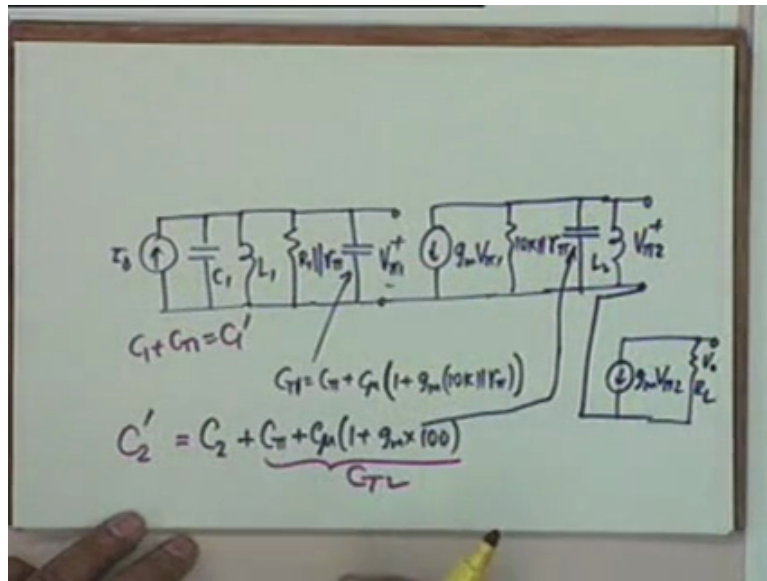 I_s
C_1
L_1
R_1||r_π
+
V_π1
-
g_m V_π1
10K||r_π
L_2
V_π2
+
C_1 + C_T1 = C_1'
C_T1 = C_π + C_μ(1 + g_m(10K||r_π))
g_m V_π2
V_o
R_L
C_2' = C_2 + C_π + C_μ(1 + g_m × 100)
C_T2